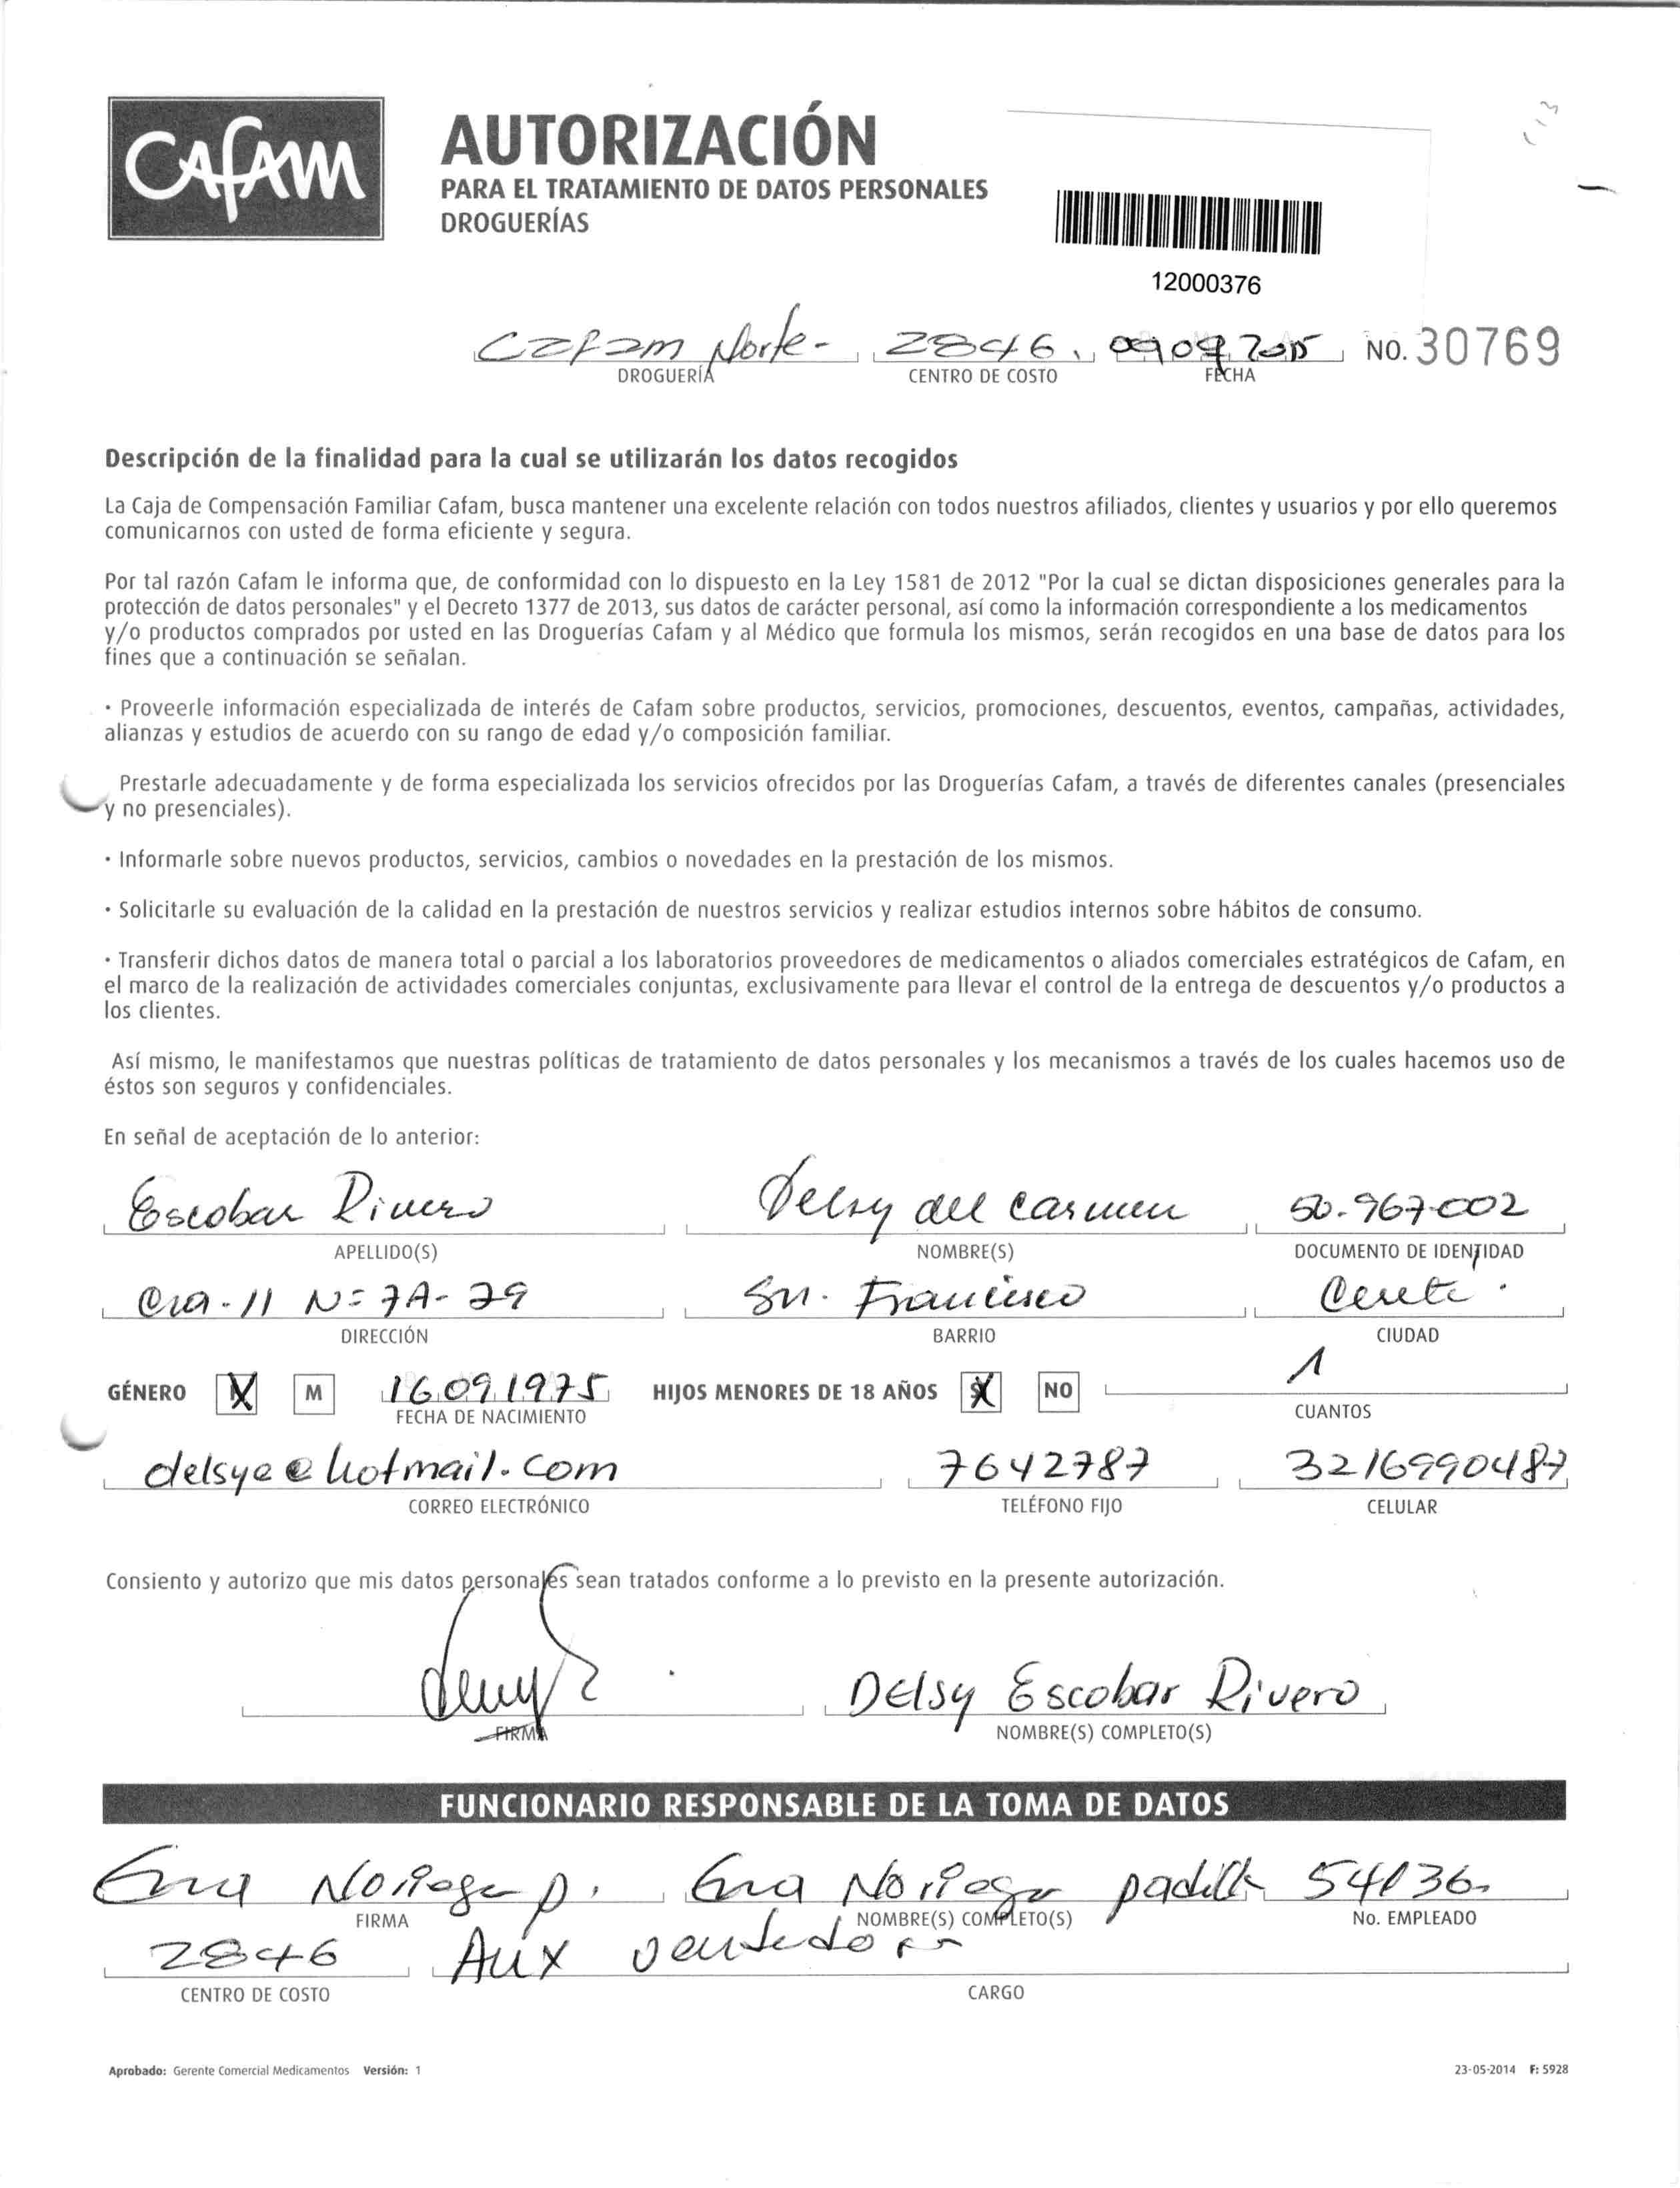 CAFAM
AUTORIZACIÓN
PARA EL TRATAMIENTO DE DATOS PERSONALES
DROGUERÍAS
12000376
Cafam Norte- 2846. 09 09 2015 NO. 30769
DROGUERÍA CENTRO DE COSTO FECHA
Descripción de la finalidad para la cual se utilizarán los datos recogidos
La Caja de Compensación Familiar Cafam, busca mantener una excelente relación con todos nuestros afiliados, clientes y usuarios y por ello queremos
comunicarnos con usted de forma eficiente y segura.
Por tal razón Cafam le informa que, de conformidad con lo dispuesto en la Ley 1581 de 2012 "Por la cual se dictan disposiciones generales para la
protección de datos personales" y el Decreto 1377 de 2013, sus datos de carácter personal, así como la información correspondiente a los medicamentos
y/o productos comprados por usted en las Droguerías Cafam y al Médico que formula los mismos, serán recogidos en una base de datos para los
fines que a continuación se señalan.
· Proveerle información especializada de interés de Cafam sobre productos, servicios, promociones, descuentos, eventos, campañas, actividades,
alianzas y estudios de acuerdo con su rango de edad y/o composición familiar.
Prestarle adecuadamente y de forma especializada los servicios ofrecidos por las Droguerías Cafam, a través de diferentes canales (presenciales
y no presenciales).
· Informarle sobre nuevos productos, servicios, cambios o novedades en la prestación de los mismos.
· Solicitarle su evaluación de la calidad en la prestación de nuestros servicios y realizar estudios internos sobre hábitos de consumo.
· Transferir dichos datos de manera total o parcial a los laboratorios proveedores de medicamentos o aliados comerciales estratégicos de Cafam, en
el marco de la realización de actividades comerciales conjuntas, exclusivamente para llevar el control de la entrega de descuentos y/o productos a
los clientes.
Así mismo, le manifestamos que nuestras políticas de tratamiento de datos personales y los mecanismos a través de los cuales hacemos uso de
éstos son seguros y confidenciales.
En señal de aceptación de lo anterior:
Escobar Rivero Delsy del Carmen 50.967.002
APELLIDO(S) NOMBRE(S) DOCUMENTO DE IDENTIDAD
Cra. 11 N= 7A- 29 Sn. Francisco Cerete.
DIRECCIÓN BARRIO CIUDAD
GÉNERO X M 16 09 1975 HIJOS MENORES DE 18 AÑOS X NO 1
FECHA DE NACIMIENTO CUANTOS
delsye@hotmail.com 7642787 3216990487
CORREO ELECTRÓNICO TELÉFONO FIJO CELULAR
Consiento y autorizo que mis datos personales sean tratados conforme a lo previsto en la presente autorización.
Delsy Escobar Rivero
FIRMA NOMBRE(S) COMPLETO(S)
FUNCIONARIO RESPONSABLE DE LA TOMA DE DATOS
Ena Noriega p. Ena Noriega padilla 54136.
FIRMA NOMBRE(S) COMPLETO(S) No. EMPLEADO
2846 Aux vendedora
CENTRO DE COSTO CARGO
Aprobado: Gerente Comercial Medicamentos Versión: 1 23-05-2014 F: 5928